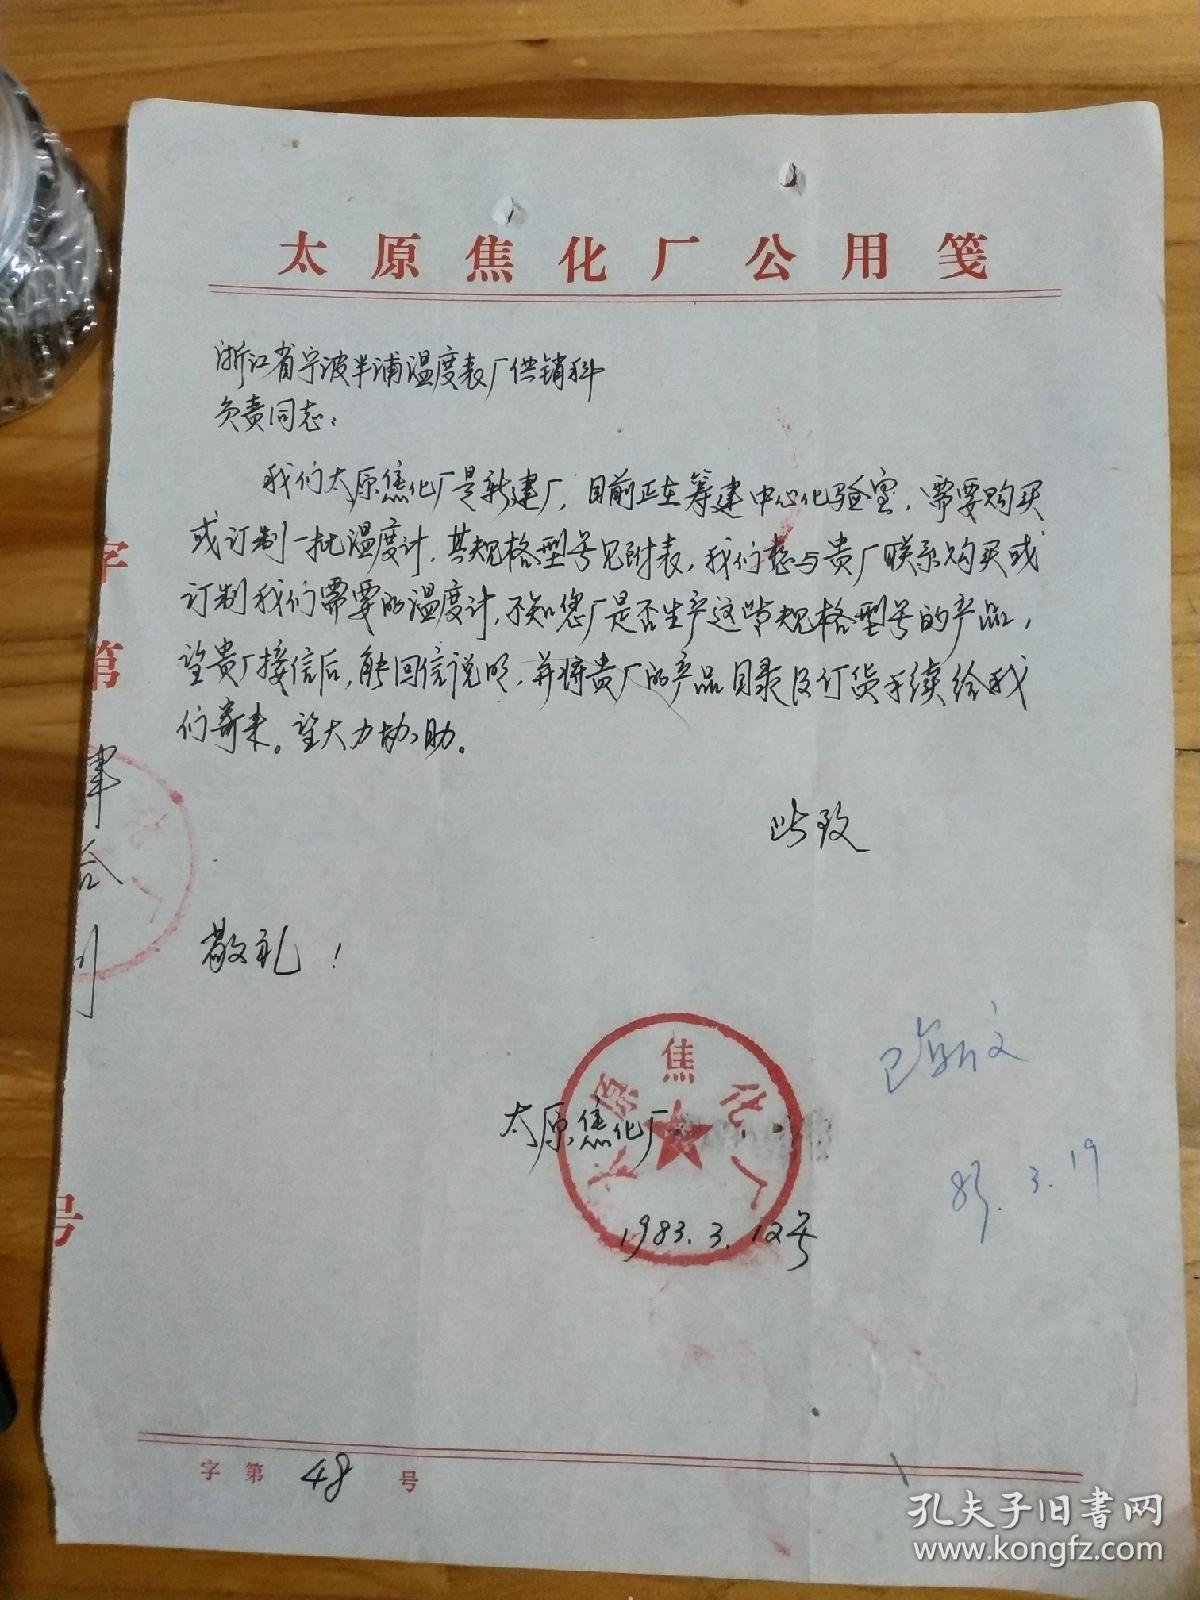 太原焦化厂公用笺
浙江省宁波半浦温度表厂供销科
负责同志：
我们太原焦化厂是新建厂，目前正在筹建中心化验室，需要购买
或订制一批温度计，其规格型号见附表，我们想与贵厂联系购买或
订制我们需要的温度计，不知您厂是否生产这些规格型号的产品，
望贵厂接信后，能回信说明，并将贵厂的产品目录及订货手续给我
们寄来。望大力协助。
此致
敬礼！
太原焦化厂
太原焦化厂
1983.3.12号
已复
83.3.19
字第
号
字第 48 号
孔夫子旧书网
www.kongfz.com